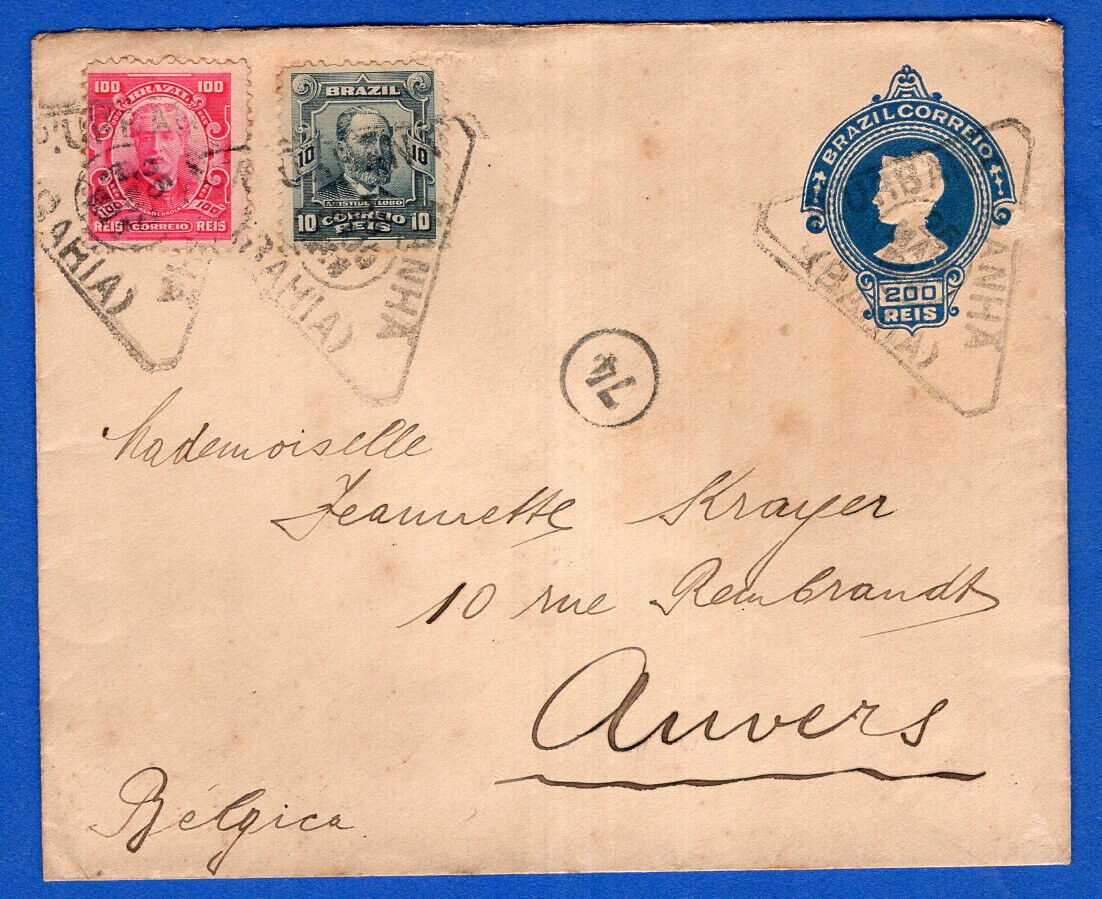 100 100
BRAZIL
100 100
REIS CORREIO REIS
BRAZIL
10 10
ARISTIDES LOBO
10 CORREIO 10
REIS
BRAZIL CORREIO
200
REIS
(BAHIA)
(BAHIA)
(BAHIA)
74
Mademoiselle
Jeannette Krayer
10 rue Rembrandt
Anvers
Bélgica